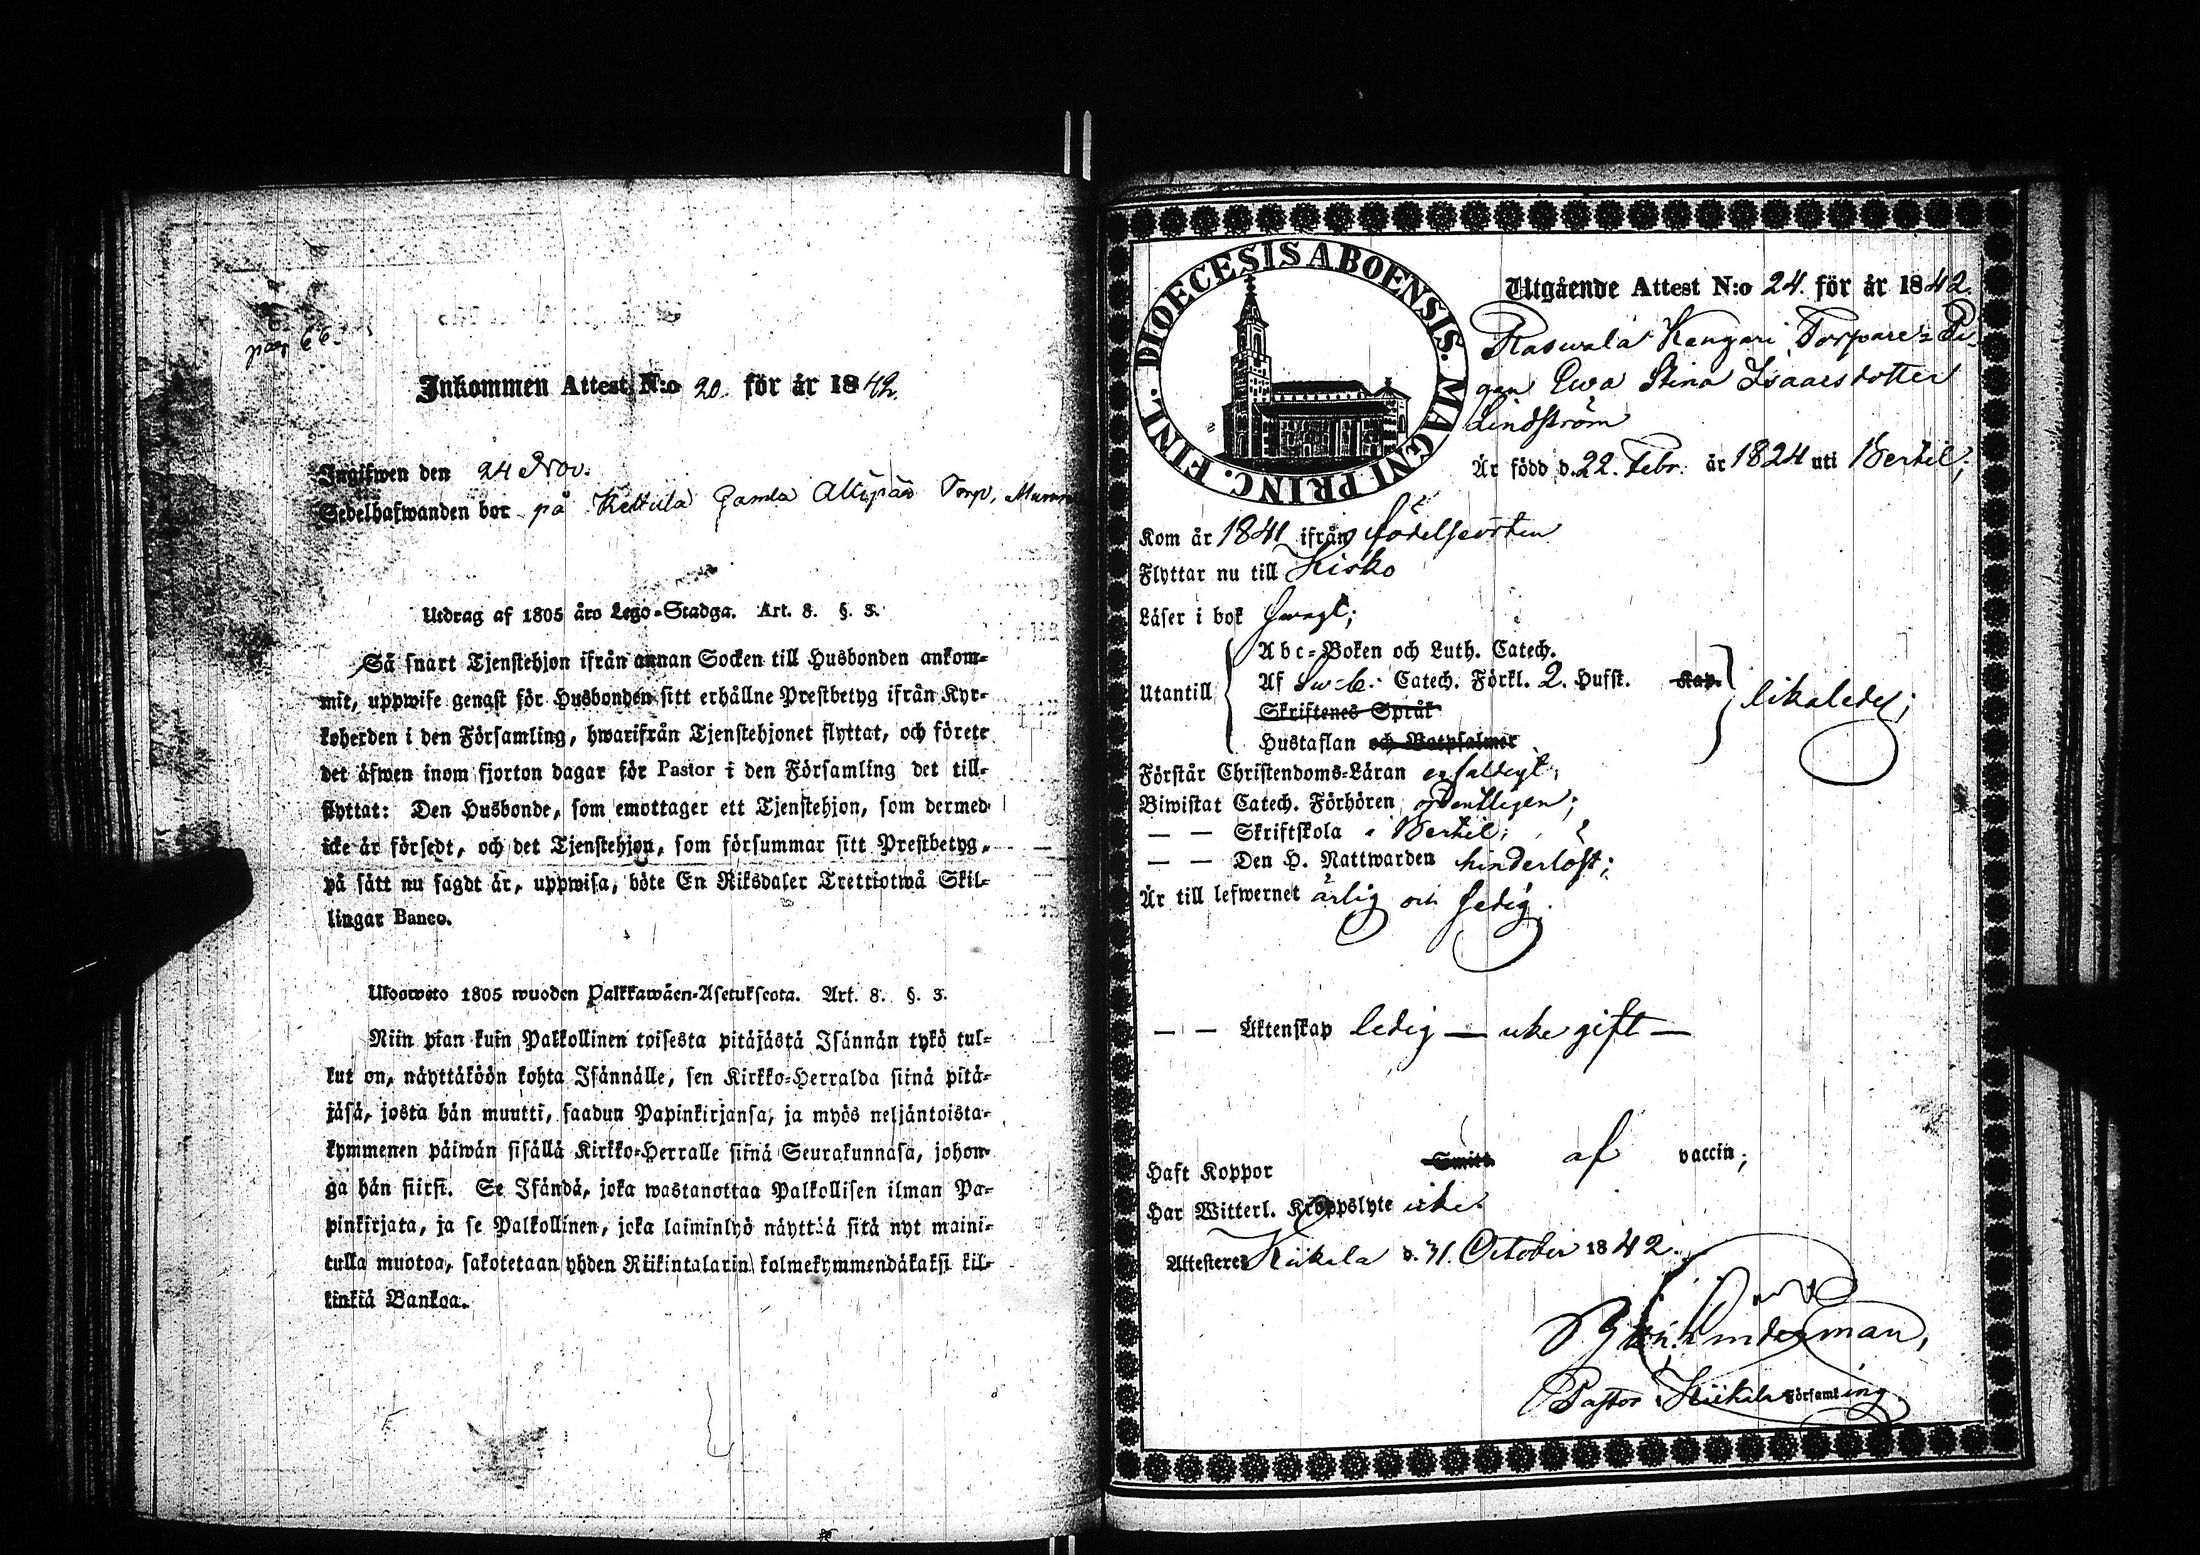 pag 66.
Inkommen Attest N:o 20. för år 1842.
Ingifwen den 24 Nov.
Sedelhafwanden bor på Kettula Gamla Torp,
Utdrag af 1805 års Lego-Stadga. Art. 8. §. 3.
Så snart Tjenstehjon ifrån annan Socken till Husbonden ankom-
mit, uppwise genast för Husbonden sitt erhållne Prestbetyg ifrån Kyr-
koherden i den Församling, hwarifrån Tjenstehjonet flyttat, och förete
det äfwen inom fjorton dagar för Pastor i den Församling det till-
flyttat: Den Husbonde, som emottager ett Tjenstehjon, som dermed
icke är försedt, och det Tjenstehjon, som försummar sitt Prestbetyg,
på sätt nu sagdt är, uppwisa, böte En Riksdaler Trettiotwå Skil-
lingar Banco.
Ulosweto 1805 wuoden Palkkawäen-Asetuksesta. Art. 8. §. 3.
Niin pian kuin Palkollinen toisesta pitäjästä Isännän tykö tul-
lut on, näyttäköön kohta Isännälle, sen Kirkko-Herralda siinä pitä-
jäsä, josta hän muutti, saadun Papinkirjansa, ja myös neljäntoista-
kymmenen päiwän sisällä Kirkko-Herralle siinä Seurakunnasa, johon-
ga hän siirsi. Se Isändä, joka wastanottaa Palkollisen ilman Pa-
pinkirjata, ja se Palkollinen, joka laiminlyö näyttää sitä nyt maini-
tulla muotoa, sakotetaan yhden Riikintalarin kolmekymmendäkaksi kil-
linkiä Bankoa.
DIOECESIS ABOENSIS. MAGNI PRINC. FINL.
Utgående Attest N:o 24. för år 1842.
Raswala Kangari Torpare Pi-
gan Ewa Stina Isaacsdotter
Lindström
Är född d. 22. Febr. år 1824 uti Bertil;
Kom år 1841 ifrån födelseorten
Flyttar nu till Kisko
Läser i bok swagt;
Utantill
Abc-Boken och Luth. Catech.
Af Sweb. Catech. Förkl. 2. Hufst. Kap.
likaledes;
Skriftenes Språk
Hustaflan och Botpsalmer
Förstår Christendoms-Läran enfaldigt;
Biwistat Catech. Förhören ordentligen;
— — Skriftskola i Bertil;
— — Den H. Nattwarden hinderlöst;
Är till lefwernet ärlig och sedig.
— — Äktenskap ledig — icke gift —
Haft Koppor Smitt. af vaccin;
Har Witterl. Kroppslyte icke.
Attesteres Kiikala d. 31. October 1842.
Linderman,
Pastor i Kiikala Församling.